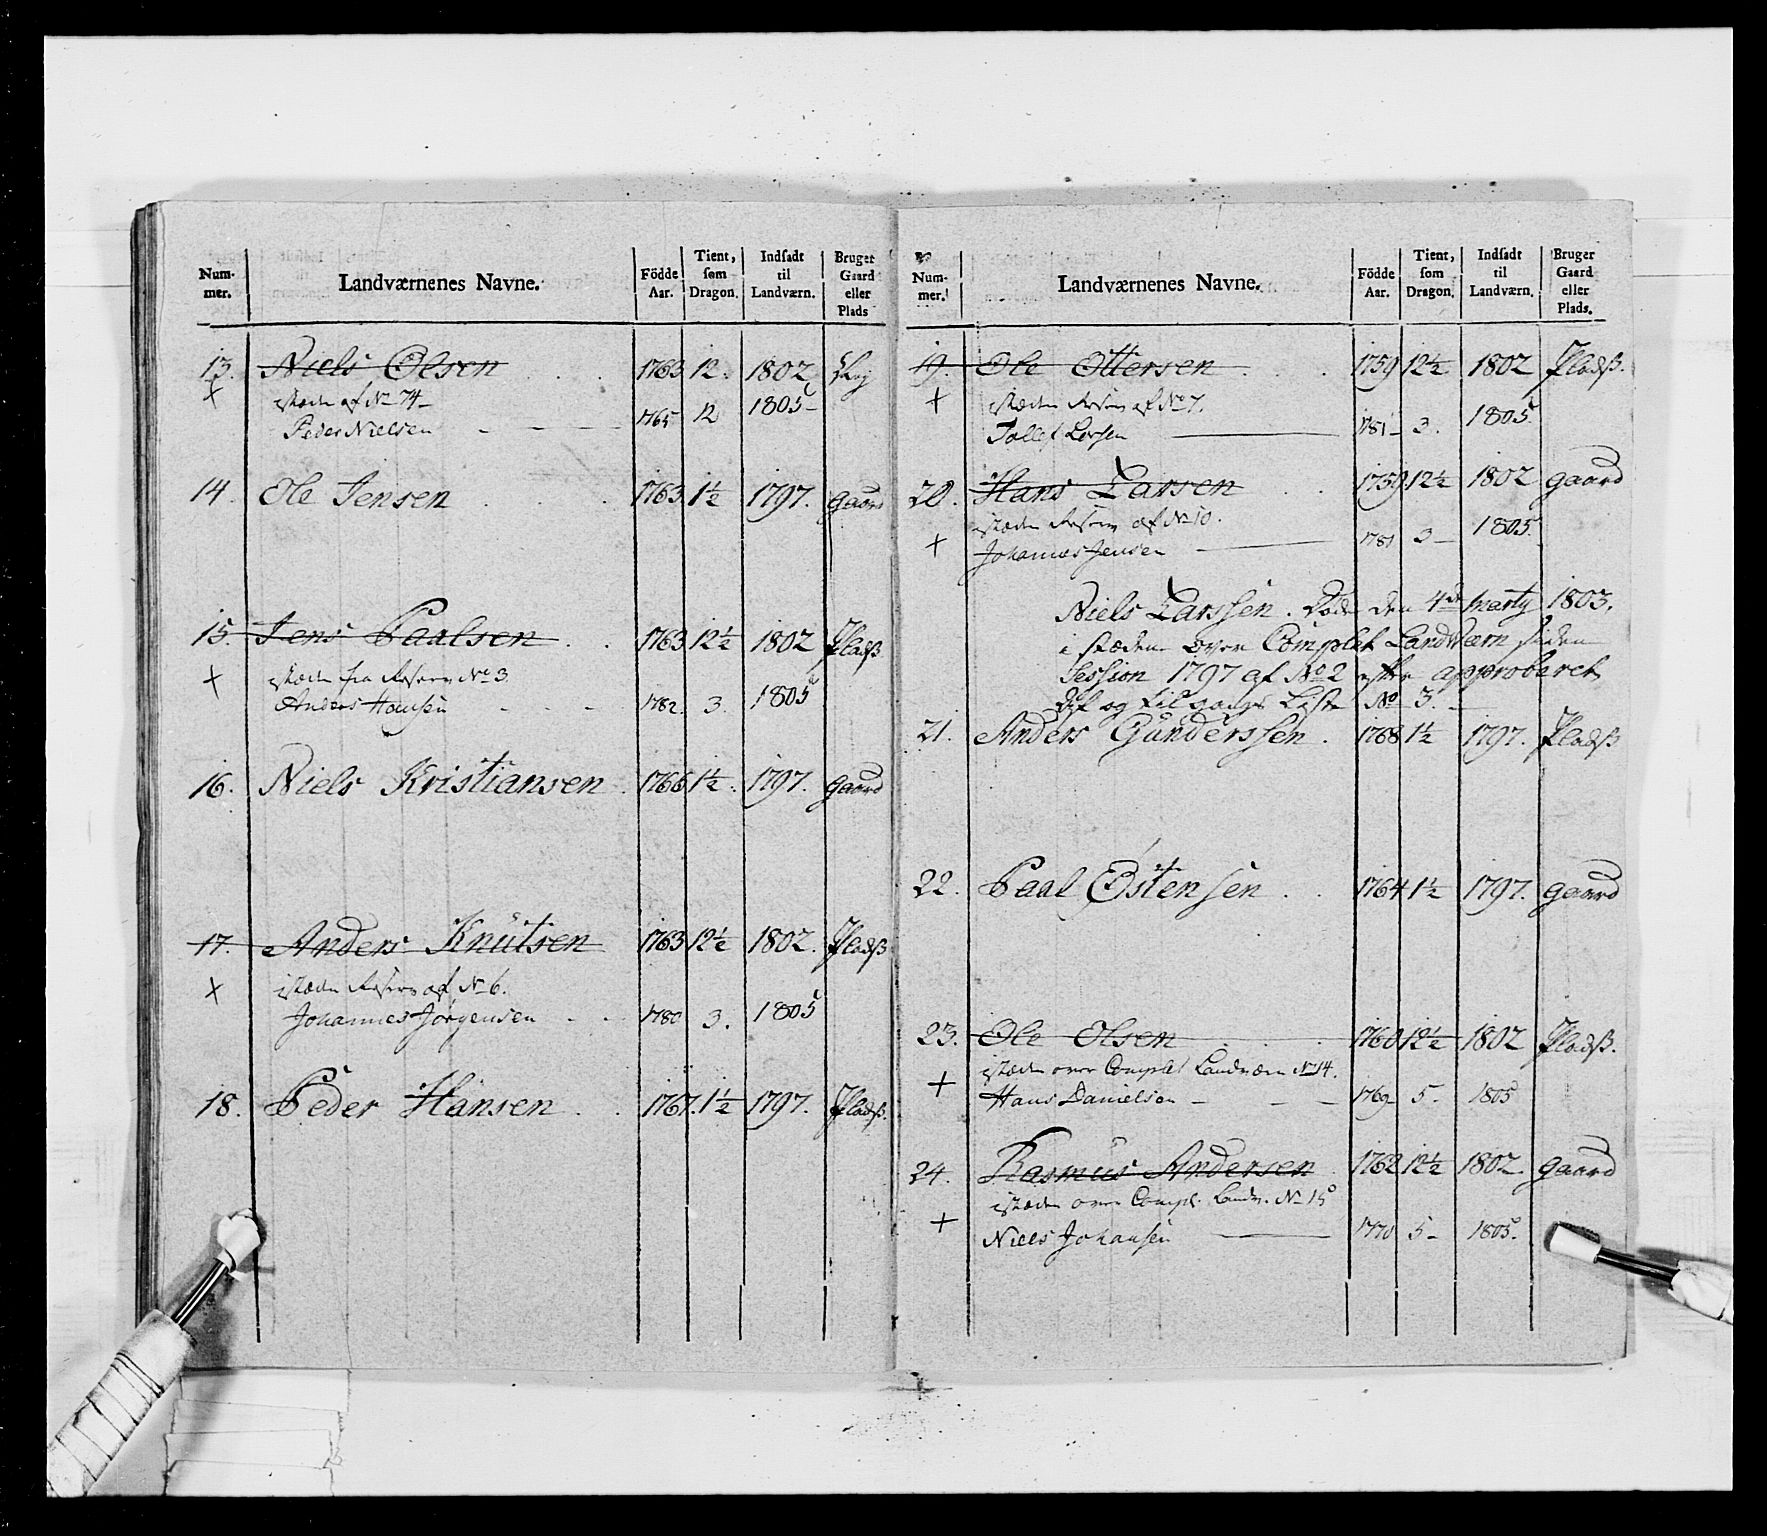 Num-mer. Landværnenes Navne. Födde Aar. Tient, som Dragon. Indsadt til Landværn. Bruger Gaard eller Plads
13. Niels Olsen 1763 12. 1802
istæden af No 74
Peder Nielsen 1765 12 1805
14. Ole Jensen 1763 1½ 1797. gaard
15. Jens Paalsen 1763 12½ 1802 Pladß
istæden fra Reserv No 3
Anders Hansen 1782. 3. 1805
16. Niels Kristiansen 1766 1½. 1797. gaard
17. Anders Knutsen 1763 12½ 1802. Pladß
istæden Reserv af No 6.
Johannes Jörgensen 1780 3. 1805
18. Peder Hansen 1767. 1½ 1797. Pladß.
Num-mer. Landværnenes Navne. Födde Aar. Tient, som Dragon. Indsadt til Landværn. Bruger Gaard eller Plads.
19. Ole Ottersen 1759 12½ 1802 Pladß.
istæden Reserv af No 7.
Tollef Larsen 1781 3. 1805.
20. Hans Larsen 1759 12½ 1802 gaard
istæden Reserv af No 10.
Johannes Jensen 1781 3 1805.
Niels Larssen. Död den 4de Marty 1803.
i stæden over Complet Landværn siden
Session 1797 af No 2 efter approberet
Af og Tilgangs Liste No 3.
21. Anders Gunderssen. 1768 1½ 1797. Pladß
22. Paal Östensen 1764 1½ 1797. gaard
23. Ole Olsen 1760 12½ 1802 Pladß.
istæden over Complet Landværn No 14.
Hans Danielsen 1769 5. 1805
24. Rasmus Andersen 1762 12½ 1802. gaard
istæden over Compl. Landv. No 15
Niels Johansen 1770 5 1805.